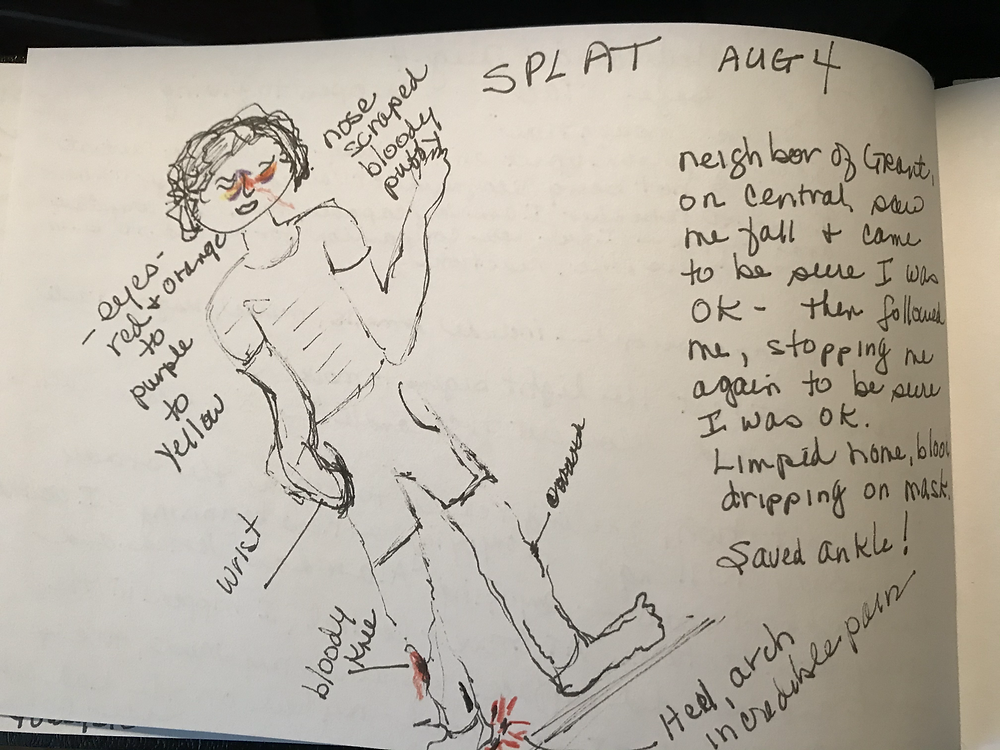 SPLAT AUG 4
nose
scraped
bloody
puffy!
- eyes -
red & orange
to
purple
to
yellow
neighbor of Grant,
on Central, saw
me fall & came
to be sure I was
OK - then followed
me, stopping me
again to be sure
I was OK.
Limped home, blood
dripping on mask.
Saved ankle!
wrist
bloody
knee
Heel, arch
incredible pain